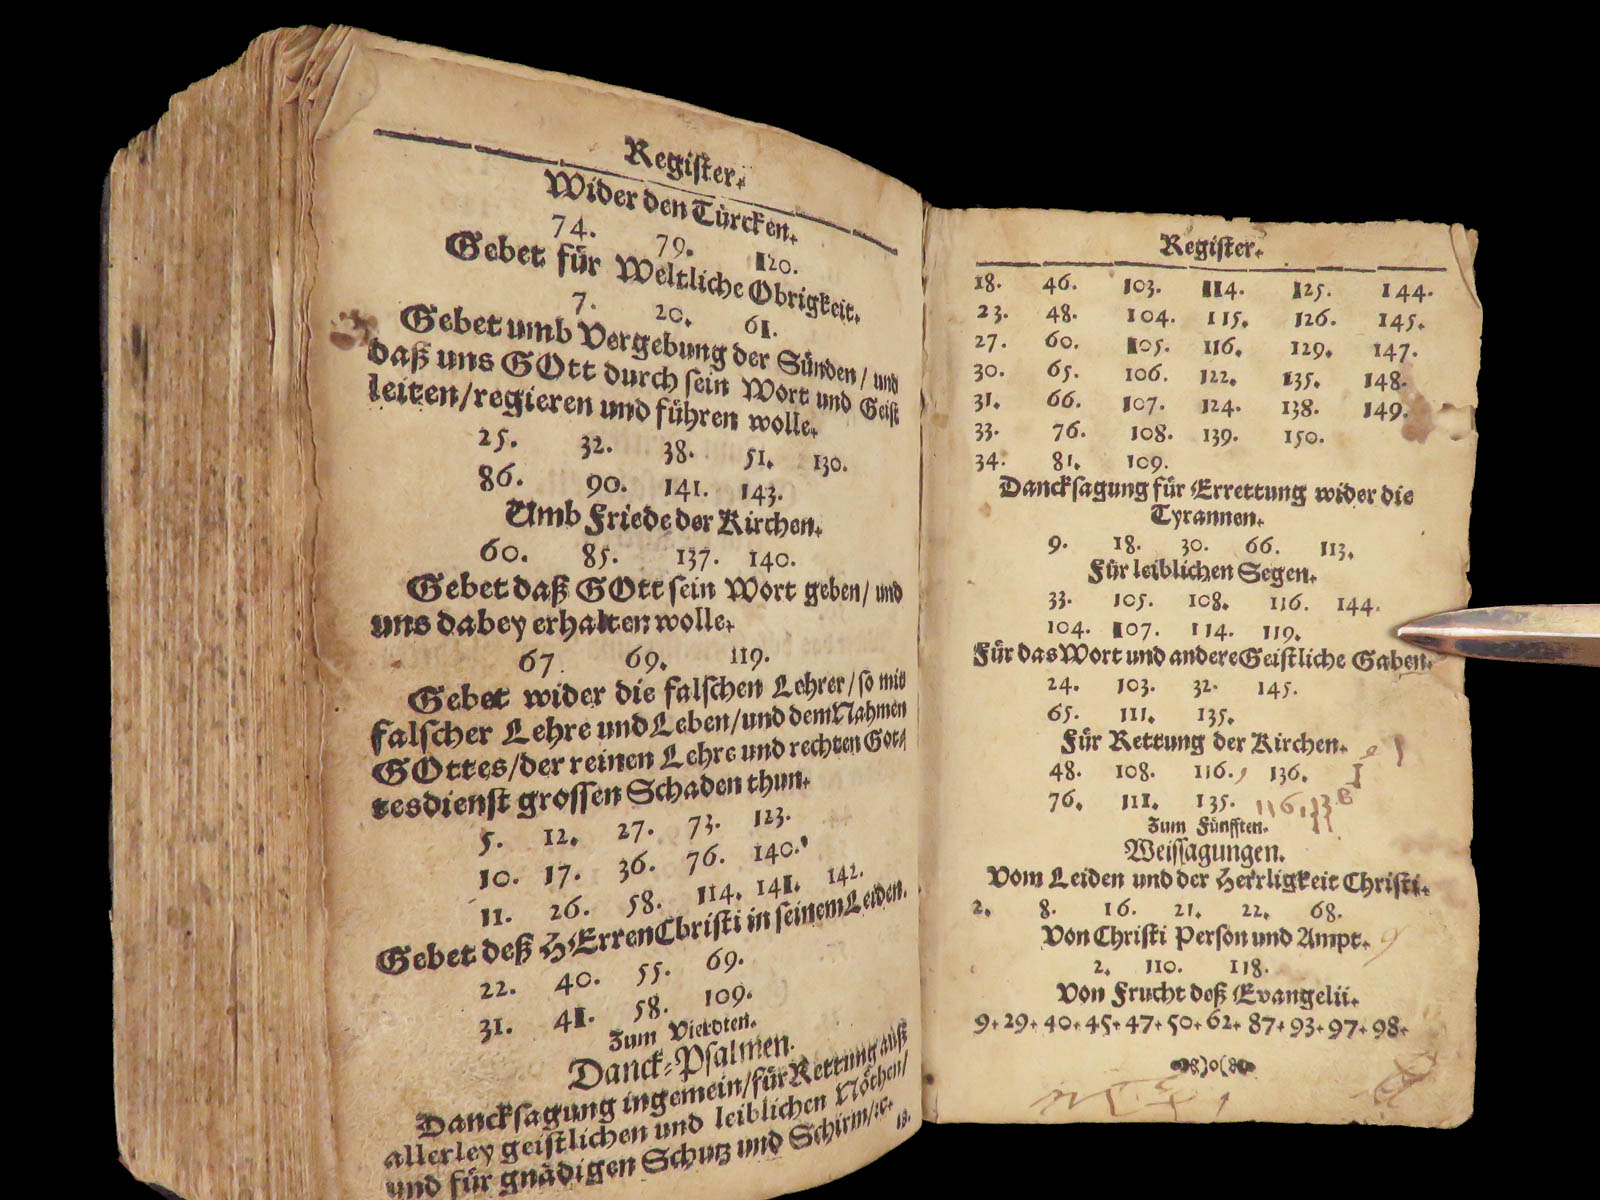 Register.
Wider den Türcken.
74. 79. 120.
Gebet für Weltliche Obrigkeit.
7. 20. 61.
Gebet umb Vergebung der Sünden / und
daß uns GOtt durch sein Wort und Geist
leiten/regieren und führen wolle.
25. 32. 38. 51. 130.
86. 90. 141. 143.
Umb Friede der Kirchen.
60. 85. 137. 140.
Gebet daß GOtt sein Wort geben / und
uns dabey erhalten wolle.
67 69. 119.
Gebet wider die falschen Lehrer / so mit
falscher Lehre und Leben/und dem Nahmen
GOttes/der reinen Lehre und rechten Got-
tesdienst grossen Schaden thun.
5. 12. 27. 73. 123.
10. 17. 36. 76. 140.
11. 26. 58. 114. 141. 142.
Gebet deß HErren Christi in seinem Leiden.
22. 40. 55. 69.
31. 41. 58. 109.
Zum Vierdten.
Danck-Psalmen.
Dancksagung ingemein/für Rettung auß
allerley geistlichen und leiblichen Nöthen/
und für gnädigen Schutz und Schirm/ꝛc.
18.
Register.
18. 46. 103. 114. 125. 144.
23. 48. 104. 115. 126. 145.
27. 60. 105. 116. 129. 147.
30. 65. 106. 122. 135. 148.
31. 66. 107. 124. 138. 149.
33. 76. 108. 139. 150.
34. 81. 109.
Dancksagung für Errettung wider die
Tyrannen.
9. 18. 30. 66. 113.
Für leiblichen Segen.
33. 105. 108. 116. 144.
104. 107. 114. 119.
Für das Wort und andere Geistliche Gaben.
24. 103. 32. 145.
65. 111. 135.
Für Rettung der Kirchen.
48. 108. 116. 136.
76. 111. 135.
Zum Fünfften.
Weissagungen.
Vom Leiden und der Herrligkeit Christi.
2. 8. 16. 21. 22. 68.
Von Christi Person und Ampt.
2. 110. 118.
Von Frucht deß Evangelii.
9. 29. 40. 45. 47. 50. 62. 87. 93. 97. 98.